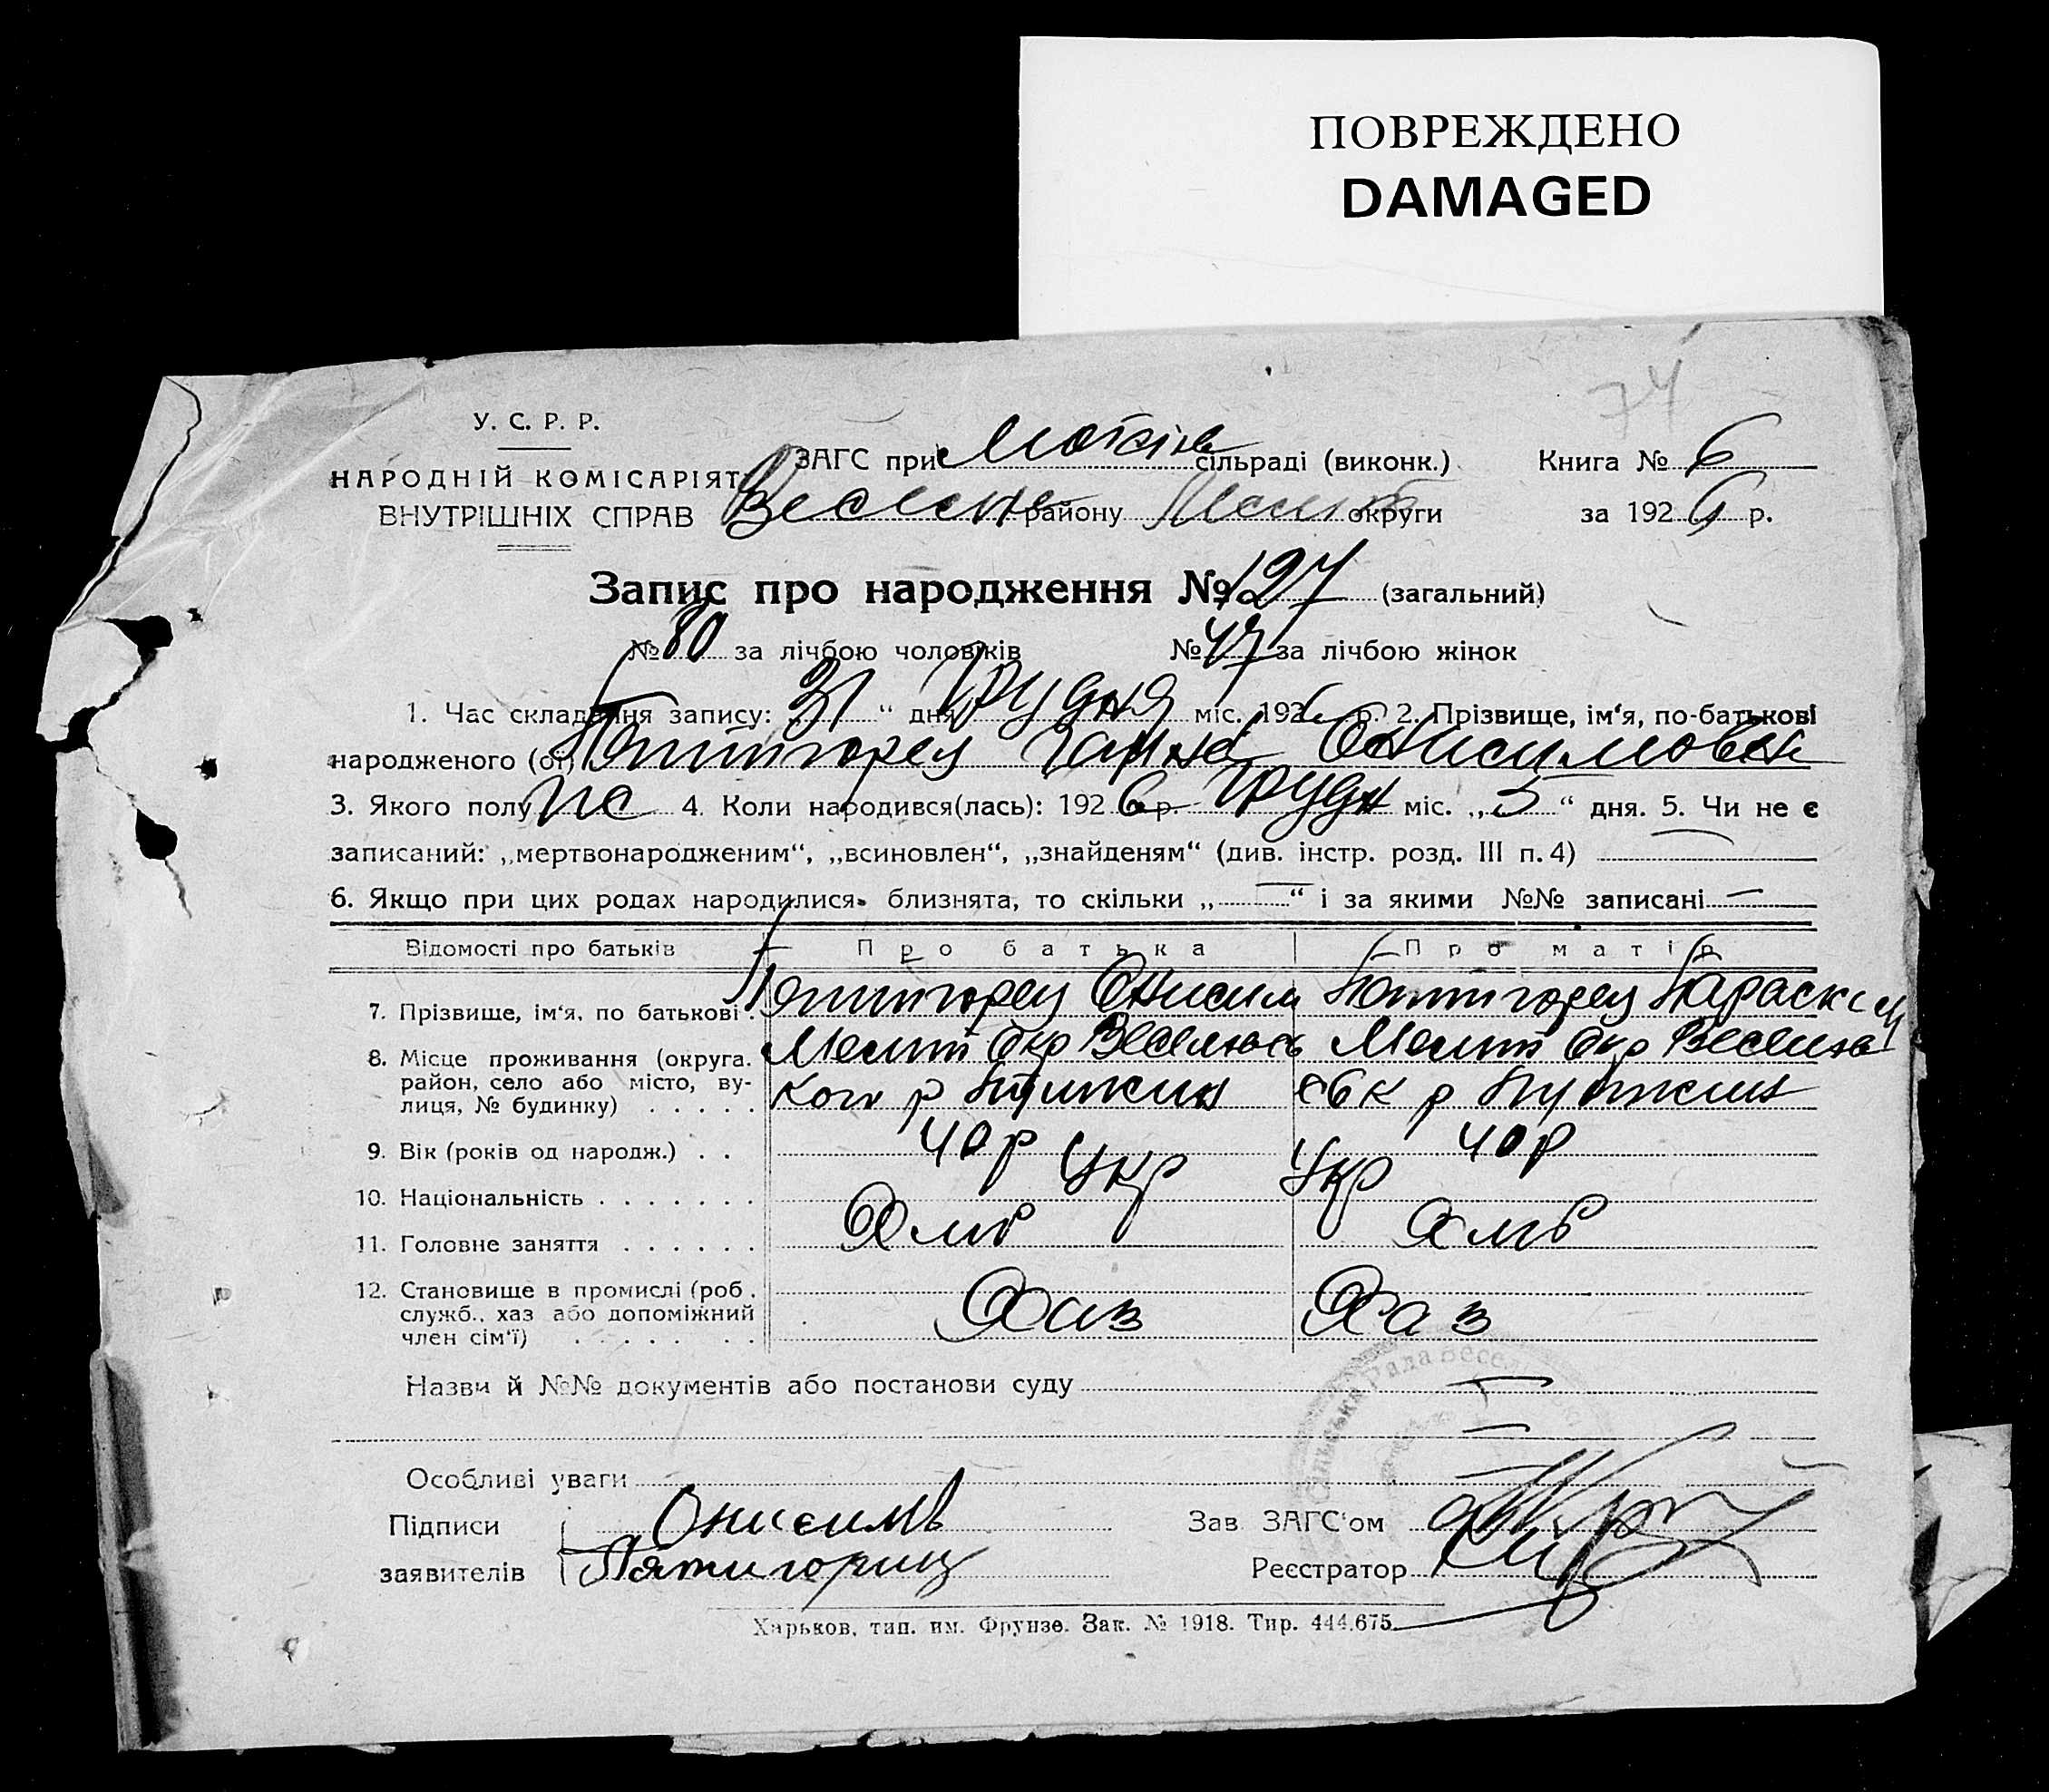 ПОВРЕЖДЕНО
DAMAGED
74
У. С. Р. Р.
НАРОДНІЙ КОМІСАРІЯТ
ВНУТРІШНІХ СПРАВ
ЗАГС при сільраді (виконк.) Книга № 6
Веселен району Меліт округи за 1926 р.
Запис про народження № 127 (загальний)
№ 80 за лічбою чоловіків № 47 за лічбою жінок
1. Час складання запису: „31“ дня Грудня міс. 1926 р. 2. Прізвище, ім‘я, по-батькові
народженого (ої) Ганна Онисимовн
3. Якого полу жс 4. Коли народився(лась): 1926 р. Грудн міс. „5“ дня. 5. Чи не є
записаний: „мертвонародженим“, „всиновлен“, „знайденям“ (див. інстр. розд. III п. 4) —
6. Якщо при цих родах народилися близнята, то скільки „—“ і за якими №№ записані —
Відомості про батьків Про батька Про матір
7. Прізвище, ім‘я, по батькові Онисим Параска
8. Місце проживання (округа. Меліт Окр Меліт Окр
район, село або місто, ву-
лиця, № будинку)
9. Вік (років од народж.) 40 р 40 р
10. Національність Укр Укр
11. Головне заняття Хліб Хліб
12. Становище в промислі (роб.
служб., хаз або допоміжний Хаз Хаз
член сім‘ї)
Назви й №№ документів або постанови суду —
Особливі уваги
Підписи Онисим Зав ЗАГС‘ом
заявителів Пятигориц Реєстратор
Сільська Рада Весел
Харьков, тип. им. Фрунзе. Зак. № 1918. Тир. 444.675.